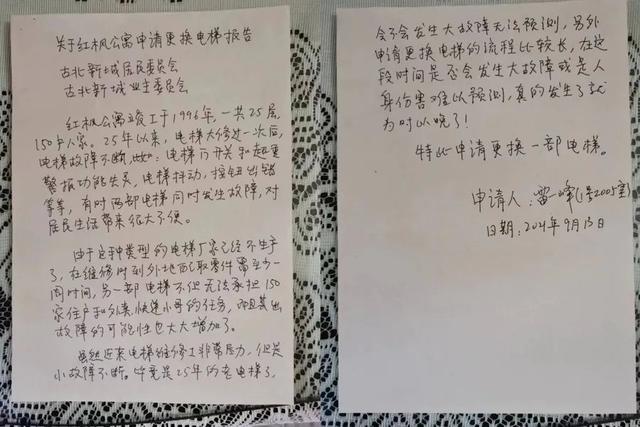 关于红枫公寓申请更换电梯报告
古北新城居民委员会
古北新城业主委员会
红枫公寓竣工于1996年，一共25层，
150户人家。25年以来，电梯大修过一次后，
电梯故障不断，比如：电梯门开关和超重
警报功能失灵，电梯抖动，按钮出错
等等，有时两部电梯同时发生故障，对
居民生活带来很大不便。
由于这种类型的电梯厂家已经不生产
了，在维修时到外地配取零件需至少一
周时间，另一部电梯不但无法承担150
家住户和外卖，快递小哥的任务，而且其出
故障的可能性也大大增加了。
虽然近来电梯维修工非常尽力，但是
小故障不断。毕竟是25年的老电梯了，
会不会发生大故障无法预测，另外
申请更换电梯的流程比较长，在这
段时间是否会发生大故障或是人
身伤害难以预测，真的发生了就
为时以晚了！
特此申请更换一部电梯。
申请人：雷一峰(1号2005室)
日期：2021年9月13日